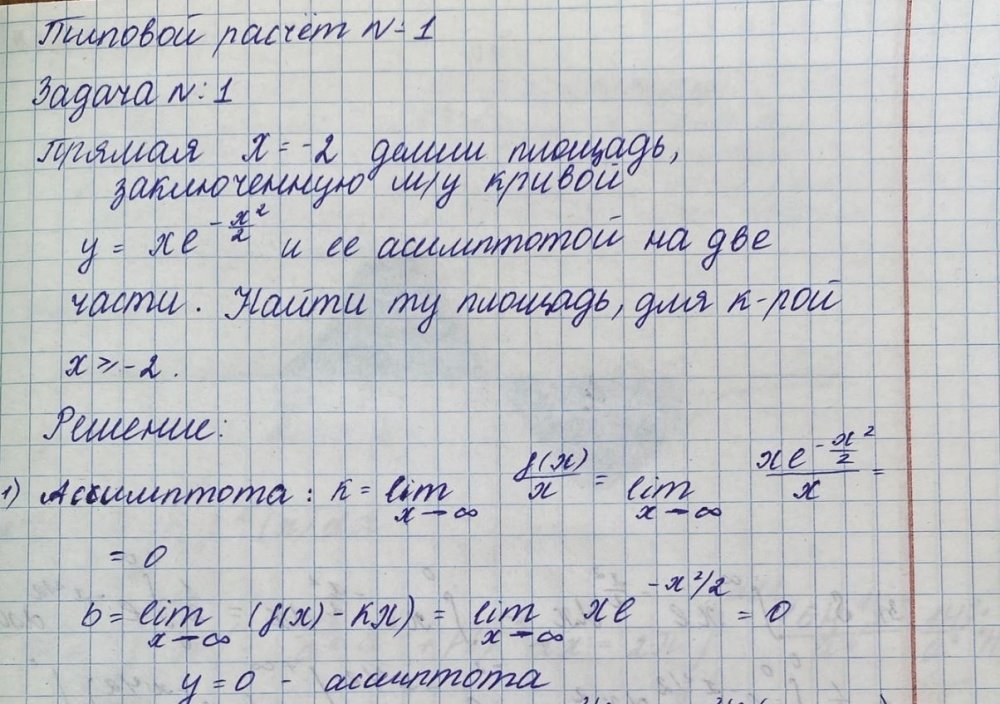 Типовой расчёт №1
Задача №:1
Прямая x = -2 делит площадь,
заключенную м/у кривой
y = xe^{-x²/2} и ее асимптотой на две
части. Найти ту площадь, для к-рой
x ≥ -2.
Решение:
1) Ассимптота: k = lim_{x→∞} f(x)/x = lim_{x→∞} xe^{-x²/2}/x =
= 0
b = lim_{x→∞} (f(x) - kx) = lim_{x→∞} xe^{-x²/2} = 0
y = 0 - ассимптота